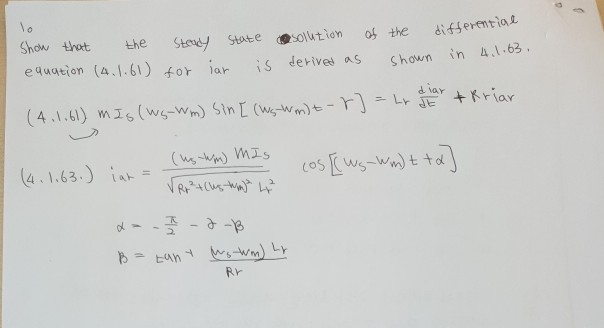 10
Show that the steady state solution of the differential
equation (4.1.61) for iar is derived as shown in 4.1.63.
(4.1.61) mIs (ws-wm) sin[(ws-wm)t-r] = Lr diar/dt + Rriar
(4.1.63.) iar = (ws-wm) mIs / √Rr²+(ws-wm)² Lr² cos[(ws-wm)t+α]
α = - π/2 - ∂ - β
β = tan + (ws-wm) Lr / Rr